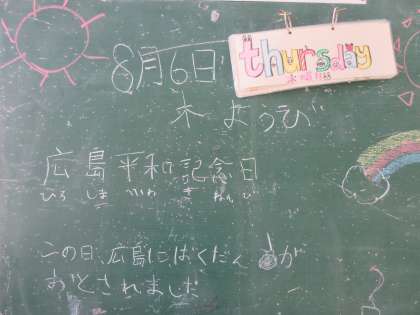 8月6日
thursday
木曜日
木ようび
広島平和記念日
ひろ しま へいわ き ねん び
この日、広島にばくだんが
おとされました